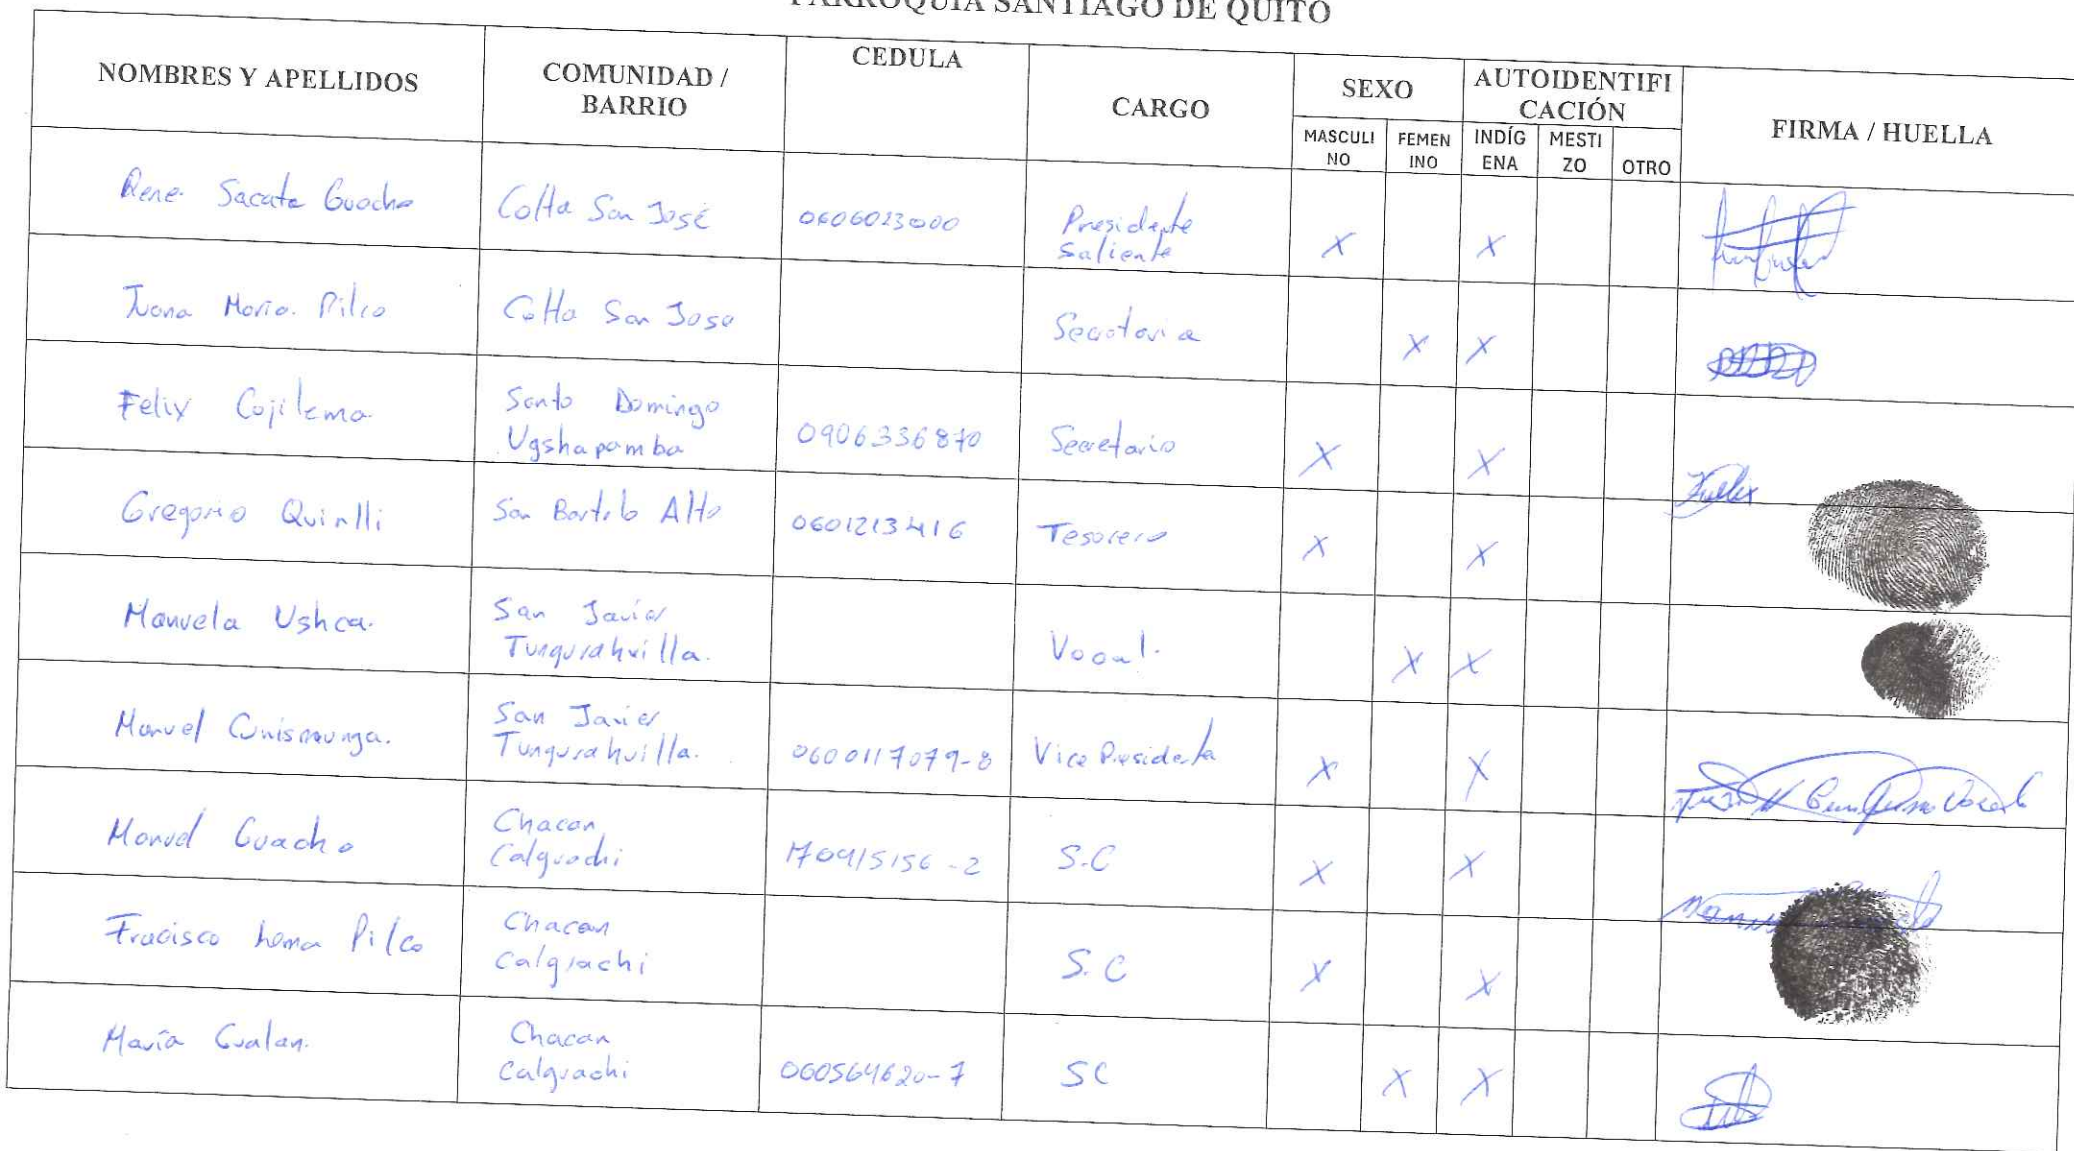 PARROQUIA SANTIAGO DE QUITO
NOMBRES Y APELLIDOS
COMUNIDAD /
BARRIO
CEDULA
CARGO
SEXO
AUTOIDENTIFI
CACIÓN
FIRMA / HUELLA
MASCULI
NO
FEMEN
INO
INDÍG
ENA
MESTI
ZO
OTRO
Rene Sacata Guacho
Colta San José
0606023000
Presidente
Saliente
X
X
Juana Maria. Pilco
Colta San Jose
Secretaria
X
X
Felix Cajilema
Santo Domingo
Ugshapamba
0906336870
Secretario
X
X
Felix
Gregorio
San Bartolo Alto
0601213416
Tesorero
X
X
Manuela Ushca.
San Javier
Tungurahuilla.
Vocal.
X
X
Manuel
San Javier
Tungurahuilla.
0600117079-8
Vice Presidente
X
X
Manuel Guacho
Chacan
Calguachi
170415156-2
S.C
X
X
Manuel
Fracisco Lema Pilco
Chacan
Calguachi
S.C
X
X
María Gualan.
Chacan
Calguachi
060564620-7
SC
X
X